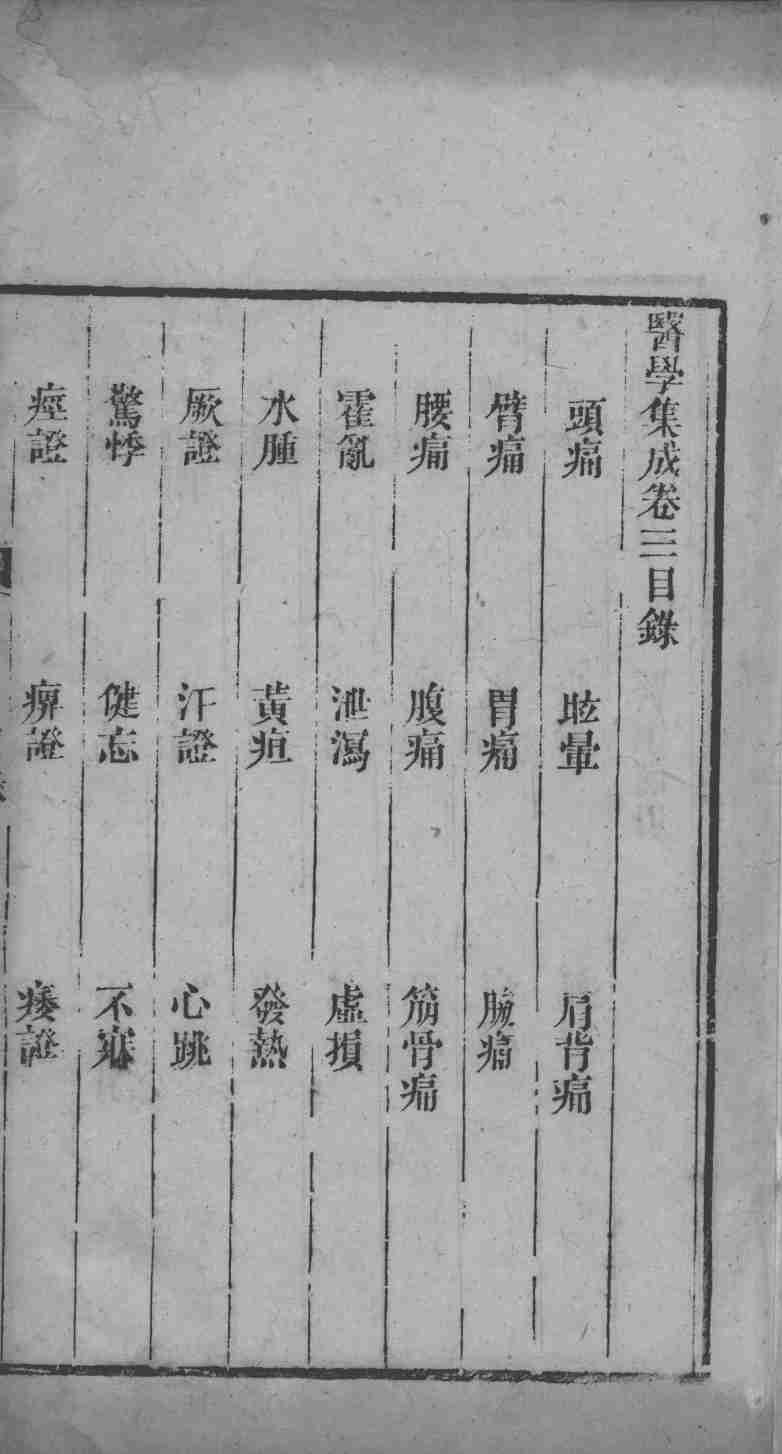 醫學集成卷三目錄
頭痛 眩暈 肩背痛
臂痛 胃痛 腕痛
腰痛 腹痛 筋骨痛
霍亂 泄瀉 虛損
水腫 黃疸 發熱
厥證 汗證 心跳
驚悸 健忘 不寐
痙證 痹證 痿證